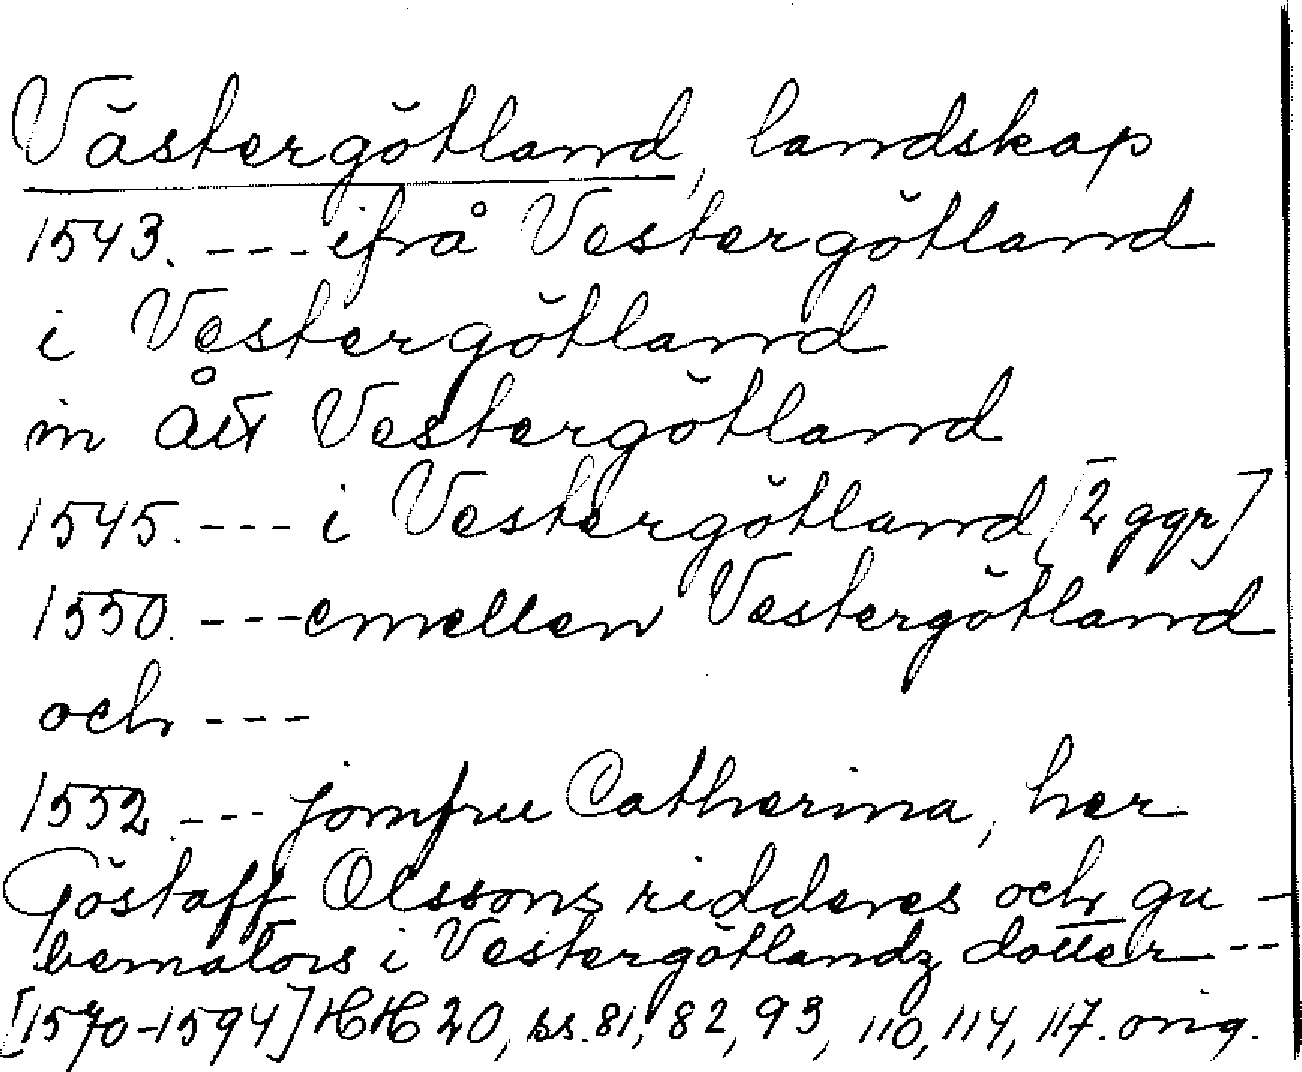 Västergötland, landskap
1543. --- ifrå Vestergötland
i Vestergötland
inått Vestergötland
1545. --- i Vestergötland [2 ggr]
1550. --- emellen Vestergötland
och ---
1552. --- jomfru Catherina, her
Göstaff Olssons ridderes och gu-
bernators i Vestergötlandz dotter --
[1570-1594] HH 20, ss. 81, 82, 93, 110, 114, 117. orig.